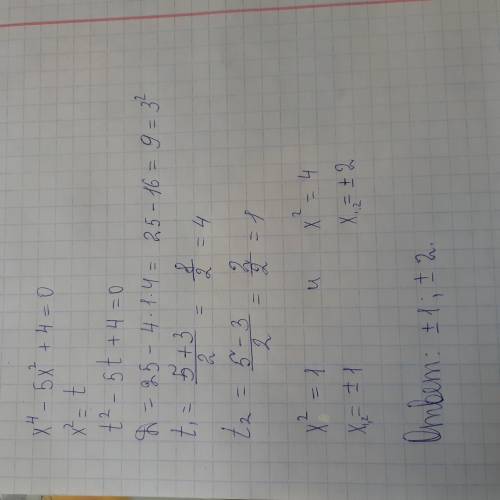 x⁴ - 5x² + 4 = 0
x² = t
t² - 5t + 4 = 0
D = 25 - 4 · 1 · 4 = 25 - 16 = 9 = 3²
t₁ = (5 + 3)/2 = 8/2 = 4
t₂ = (5 - 3)/2 = 2/2 = 1
x² = 1 и x² = 4
x₁,₂ = ±1 x₁,₂ = ±2
Ответ: ±1; ±2.